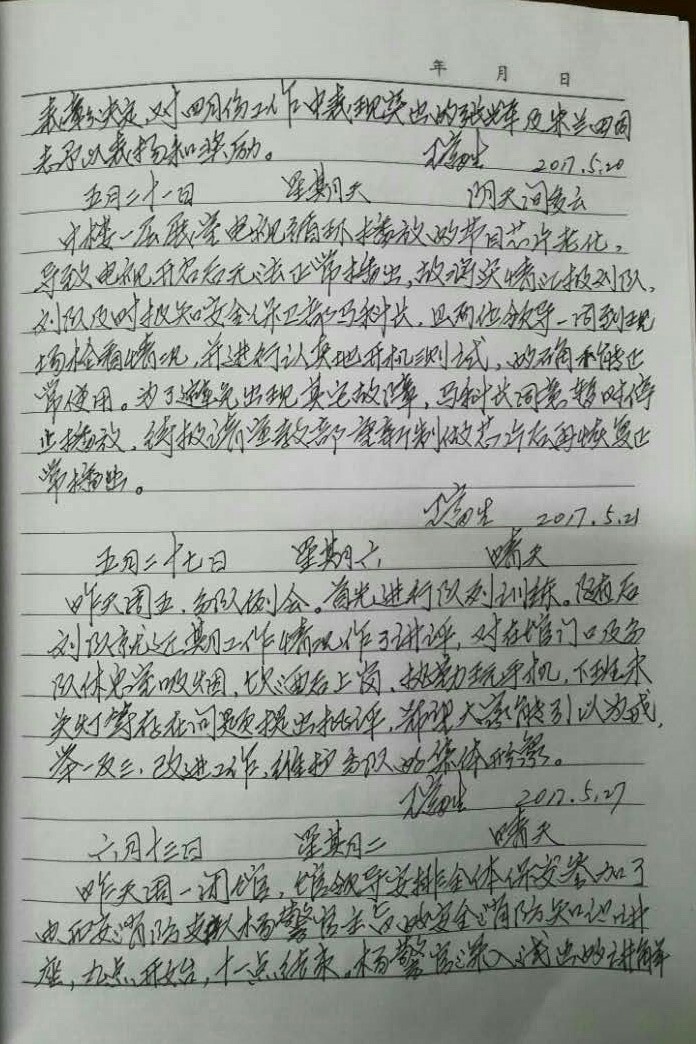 年 月 日
决定,对四月份工作中表现突出的张辉及宋兰田同
志予以表扬和奖励。
2017.5.20
五月二十一日 星期天 阴天间多云
中楼一层展室电视循环播放的节目芯片老化,
导致电视开启后无法正常播出,故将实情汇报刘队,
刘队及时报知安全保卫部马科长,且两位领导一同到现
场检看情况,并进行认真地开机测试,的确不能正
常使用。为了避免出现其它故障,马科长同意暂时停
止播放,待报请宣教部重新制做芯片后再恢复正
常播出。
2017.5.21
五月二十七日 星期六 晴天
昨天周五,务队例会。首先进行队列训练。随后
刘队就近期工作情况作了讲评,对在馆门口及务
队休息室吸烟,饮酒后上岗,执勤玩手机,下班未
关灯等存在问题提出批评,希望大家能引以为戒,
举一反三,改进工作,维护务队的集体形象。
2017.5.27
六月十三日 星期二 晴天
昨天周一闭馆,馆领导安排全体保安参加了
由 安消防 杨警官主 的安全消防知识讲
座,九点开始,十一点结束。杨警官深入浅出的讲解